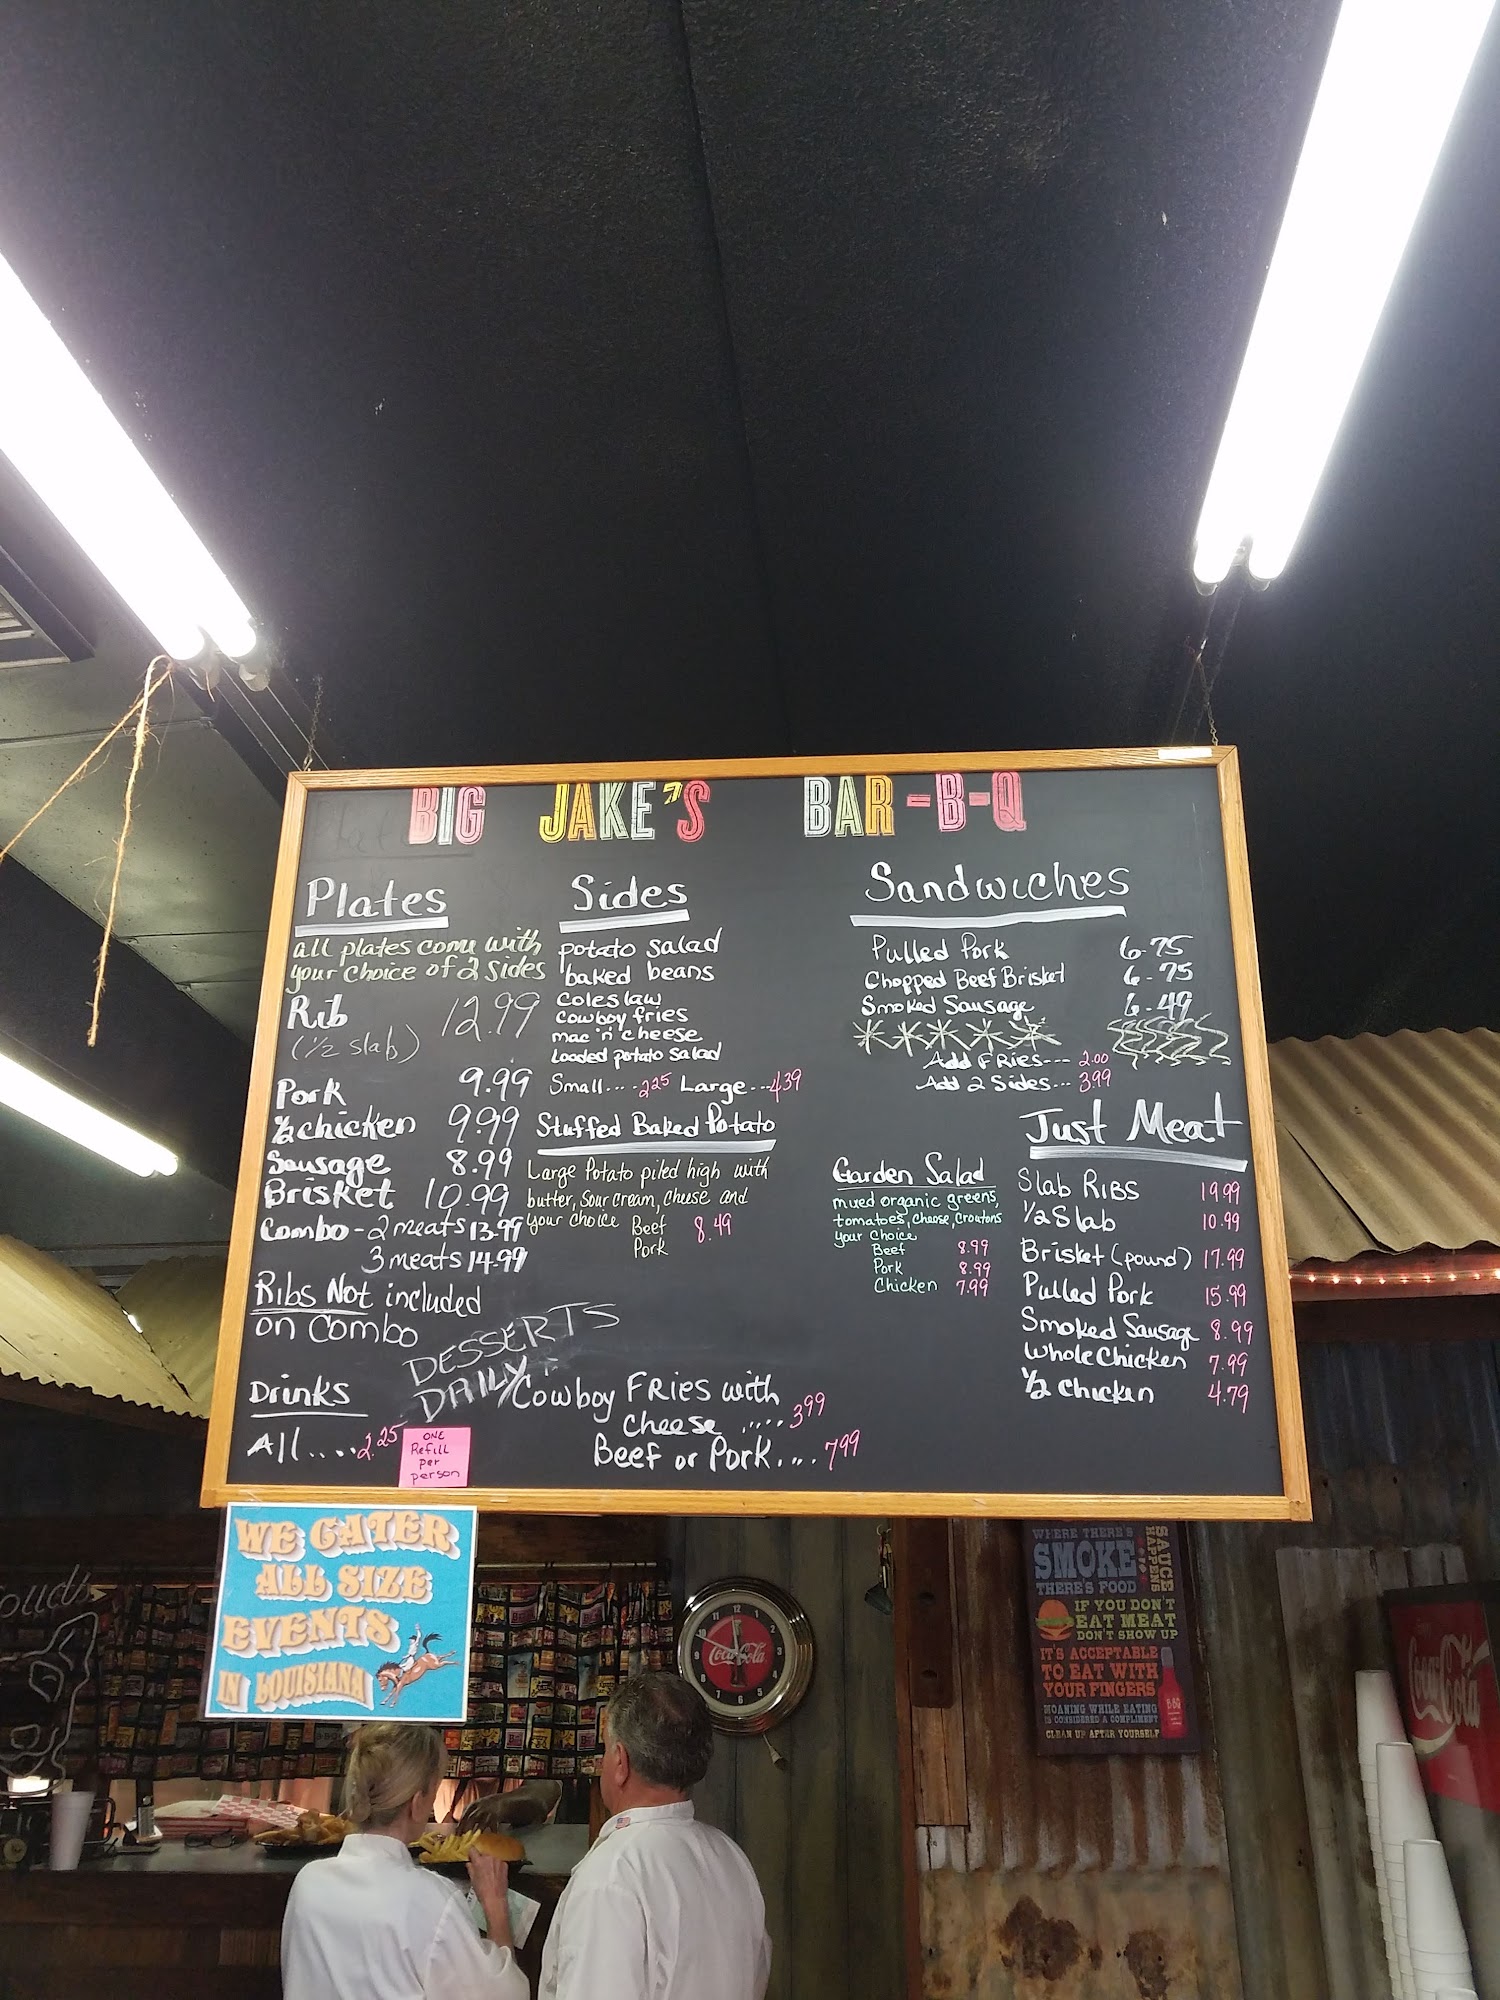 BIG JAKE'S BAR-B-Q
Plates
all plates come with
your choice of 2 sides
Rib 12.99
(1/2 slab)
Pork 9.99
1/2 chicken 9.99
Sausage 8.99
Brisket 10.99
Combo - 2 meats 13.99
3 meats 14.99
Ribs Not included
on Combo
Drinks
All.... 2.25
ONE
Refill
per
person
DESSERTS
DAILY
Sides
potato salad
baked beans
coleslaw
cowboy fries
mac 'n' cheese
Loaded potato salad
Small.... 2.25 Large...4.39
Stuffed Baked Potato
Large Potato piled high with
butter, sour cream, cheese and
your choice Beef 8.49
Pork
Cowboy FRies with
cheese ..... 3.99
Beef or Pork.... 7.99
Sandwiches
Pulled Pork 6.75
Chopped Beef Brisket 6.75
Smoked Sausage 6.49
Add FRies--- 2.00
Add 2 Sides--- 3.99
Garden Salad
mixed organic greens,
tomatoes, cheese, croutons
your choice
Beef 8.99
Pork 8.99
Chicken 7.99
Just Meat
Slab RIBS 19.99
1/2 Slab 10.99
Brisket (pound) 17.99
Pulled Pork 15.99
Smoked Sausage 8.99
Whole Chicken 7.99
1/2 chicken 4.79
WE CATER
ALL SIZE
EVENTS
IN LOUISIANA
Coca-Cola
WHERE THERE'S
SMOKE
THERE'S FOOD
SAUCE
HAPPENS
IF YOU DON'T
EAT MEAT
DON'T SHOW UP
IT'S ACCEPTABLE
TO EAT WITH
YOUR FINGERS
MOANING WHILE EATING
IS CONSIDERED A COMPLIMENT
CLEAN UP AFTER YOURSELF
BBQ
Coca-Cola